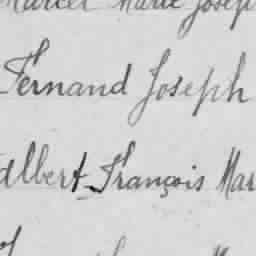 Marcel Marie Joseph
Fernand Joseph
Albert François Mar